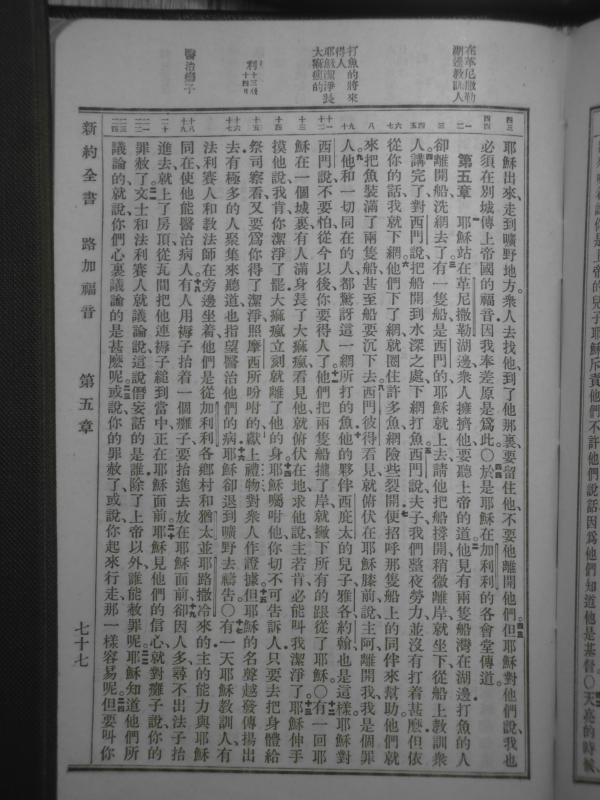 在革尼撒勒
湖邊教訓人
打魚的將來
得人
耶穌潔淨長
大痲瘋的
利十三後
十四
醫治癱子
耶穌出來、走到曠野地方、衆人去找他、到了他那裏、要留住他、不要他離開他們、但耶穌對他們說、我也
必須在別城傳上帝國的福音、因我奉差原是爲此、〇於是耶穌在加利利的各會堂傳道、
第五章 耶穌站在革尼撒勒湖邊、衆人擁擠他、要聽上帝的道、他見有兩隻船灣在湖邊、打魚的人
卻離開船、洗網去了、有一隻船、是西門的、耶穌就上去、請他把船撐開、稍微離岸、就坐下、從船上敎訓衆
人、講完了、對西門說、把船開到水深之處、下網打魚、西門說、夫子、我們整夜勞力、並沒有打着甚麽、但依
從你的話、我就下網、他們下了網、就圈住許多魚、網險些裂開、便招呼那隻船上的同伴來幫助、他們就
來、把魚裝滿了兩隻船、甚至船要沉下去、西門彼得看見、就俯伏在耶穌膝前、說、主阿、離開我、我是個罪
人、他和一切同在的人、都驚訝這一網所打的魚、他的夥伴西庇太的兒子雅各約翰、也是這樣、耶穌對
西門說、不要怕、從今以後、你要得人了、他們把兩隻船攏了岸、就撇下所有的、跟從了耶穌、〇有一回耶
穌在一個城裏、有人滿身長了大痲瘋、看見他就俯伏在地、求他說、主若肯、必能叫我潔淨了、耶穌伸手
摸他、說、我肯、你潔淨了罷、大痲瘋立刻就離了他的身、耶穌囑咐他、你切不可告訴人、只要去把身體給
祭司察看、又要爲你得了潔淨、照摩西所吩咐的、獻上禮物、對衆人作證據、但耶穌的名聲、越發傳揚出
去、有極多的人聚集來聽道、也指望醫治他們的病、耶穌卻退到曠野去禱告、〇有一天耶穌敎訓人、有
法利賽人和敎法師在旁邊坐着、他們是從加利利各鄉村和猶太並耶路撒冷來的、主的能力與耶穌
同在、使他能醫治病人、有人用褥子抬着一個癱子、要抬進去放在耶穌面前、卻因人多、尋不出法子抬
進去、就上了房頂、從瓦間把他連褥子縋到當中、正在耶穌面前、耶穌見他們的信心、就對癱子說、你的
罪赦了、文士和法利賽人就議論說、這說僭妄話的是誰、除了上帝以外、誰能赦罪呢、耶穌知道他們所
議論的、就說、你們心裏議論的是甚麽呢、或說你的罪赦了、或說你起來行走、那一樣容易呢、但要叫你
新約全書 路加福音 第五章 七十七